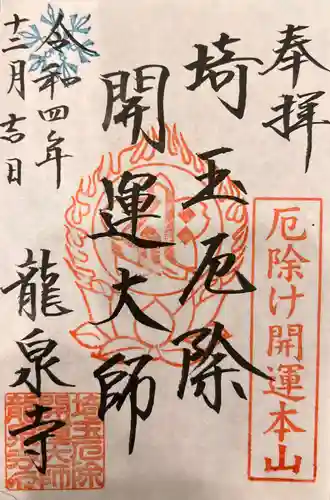 奉拝
厄除け開運本山
埼玉厄除
開運大師
龍泉寺
令和四年
十二月吉日
埼玉厄除
開運大師
龍泉寺